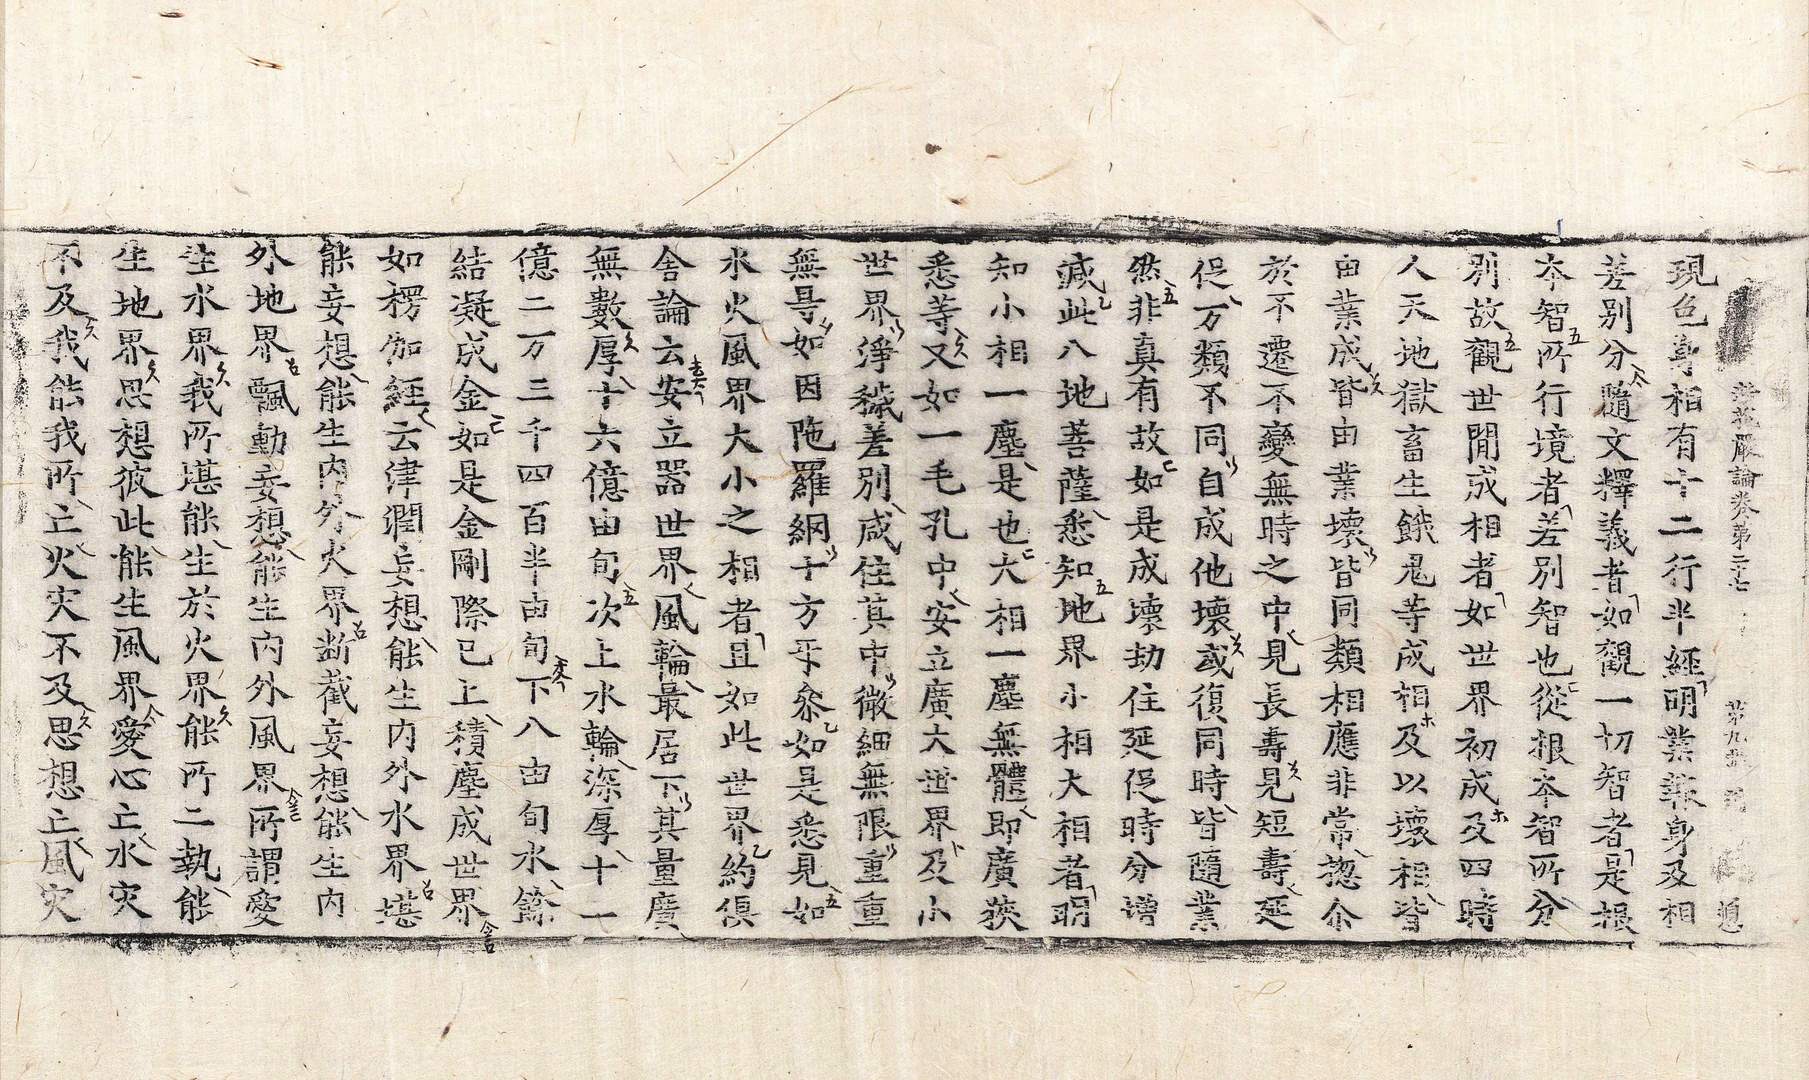 華嚴論卷第二十七 第九
現色身相有十二行半經明業報身及相
差别分隨文釋義者如觀一切智者是根
夲智所行境者差别智也從根夲智所分
别故觀世閒成相者如世界初成及四時
人天地獄畜生餓鬼等成相及以壞相皆
由業成皆由業壞皆同類相應非常揔令
於不遷不變無時之中見長壽見短壽延
促万類不同自成他壞或復同時皆隨業
然非真有故如是成壞劫住延促時分增
減此八地菩薩悉知地界小相大相者明
知小相一塵是也大相一塵無體即廣狹
悉等又如一毛孔中安立廣大世界及小
世界淨穢差别咸住其中微細無限重重
無㝵如因陁羅網十方平叅如是悉見如
水火風界大小之相者且如此世界約俱
舎論云安立器世界風輪最居下其量廣
無數厚十六億由旬次上水輪深厚十一
億二万三千四百半由旬下八由旬水餘
結凝成金如是金剛際已上積塵成世界
如楞伽經云津潤妄想能生内外水界堪
能妄想能生内外火界断截妄想能生内
外地界飄動妄想能生内外風界所謂愛
生水界我所堪能生於火界能所二執能
生地界思想彼此能生風界愛心亡水灾
不及我能我所亡火灾不及思想亡風灾